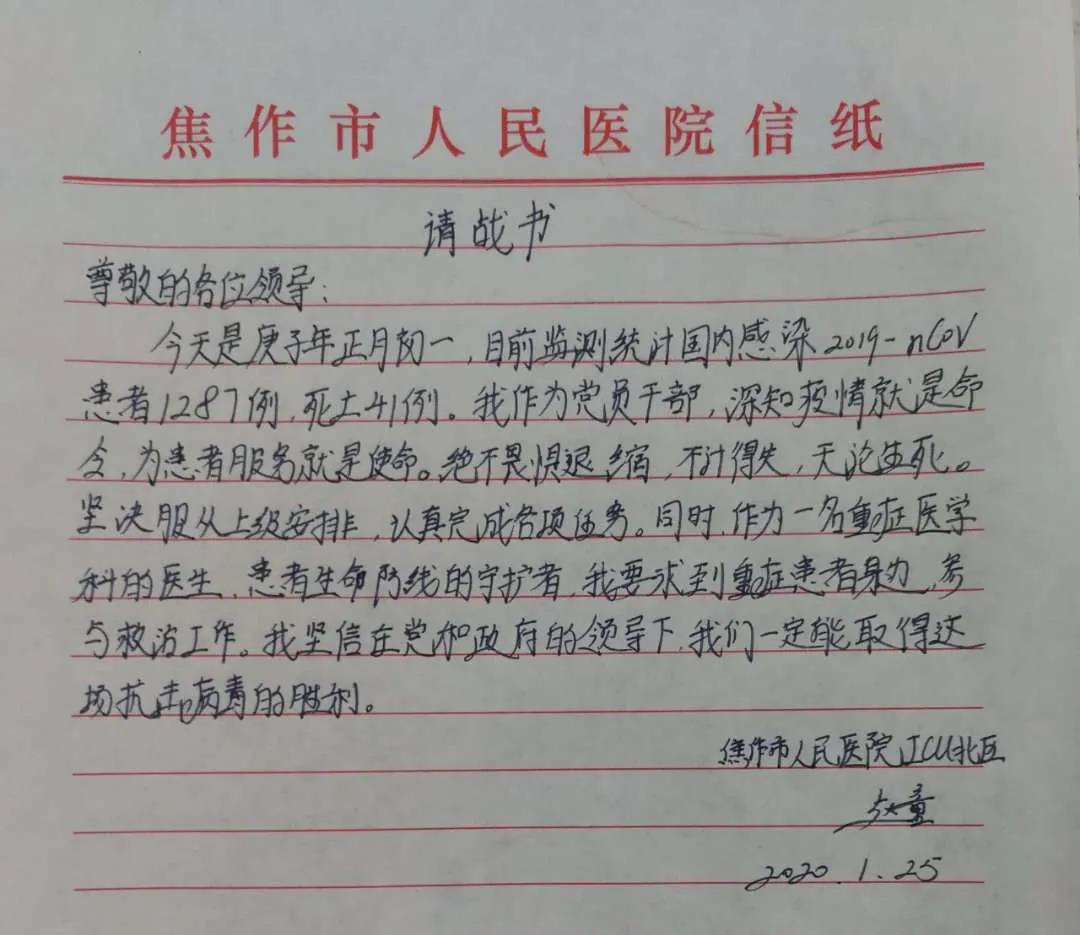 焦作市人民医院信纸
请战书
尊敬的各位领导：
今天是庚子年正月初一，目前监测统计国内感染2019-nCoV
患者1287例，死亡41例。我作为党员干部，深知疫情就是命
令，为患者服务就是使命。绝不畏惧退缩，不计得失，无论生死。
坚决服从上级安排，认真完成各项任务。同时，作为一名重症医学
科的医生，患者生命防线的守护者，我要求到重症患者身边，参
与救治工作。我坚信在党和政府的领导下，我们一定能取得这
场抗击病毒的胜利。
焦作市人民医院ICU北区
赵童
2020.1.25